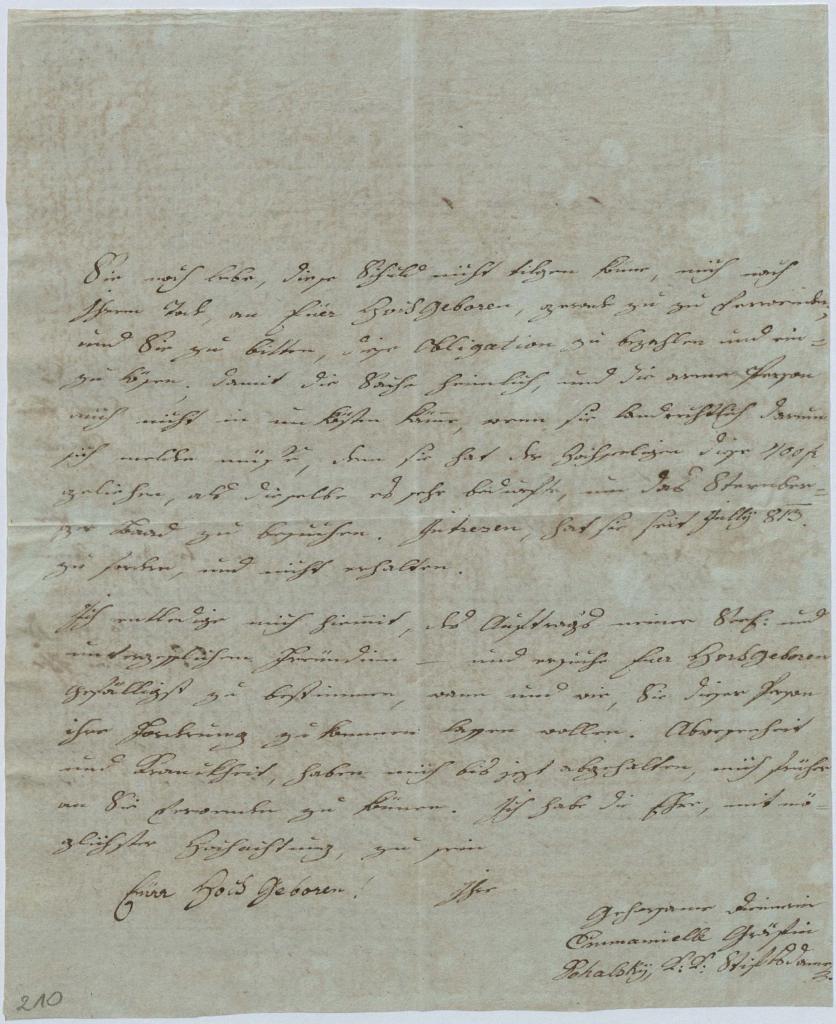 Sie noch lebe, diese Schuld nicht tilgen könne, mich nach
Ihrem Tod, an Euer Hochgeboren, gerade zu zu verwenden,
und Sie zu bitten, diese Obligation zu bezahlen und ein=
zu lösen. damit die Sache heimlich, und die arme Person
auch nicht in unkösten käme, wenn sie landrechtlich darum
sich melden müßte, denn sie hat der Hochseeligen diese 400 f
geliehen, als dieselbe es sehr bedurfte, um das Sternber=
ger Baad zu besuchen. Intresen, hat sie seit Jully 813.
zu fordern, und nicht erhalten.
Ich entledige mich hiemit, des Auftrags meiner Seel: und
unvergesslichen Freündinn — und ersuche Euer Hochgeboren
gefälligst zu bestimmen, wann und wie, Sie dieser Person
ihre Forderung zukommen lassen wollen. Abwesenheit
und Kranckheit, haben mich bis jezt abgehalten, mich früher
an Sie verwenden zu können. Ich habe die Ehre, mit mö=
glichster Hochachtung, zu sein
Euer Hoch Geboren! Ihre
Gehorsame Dienerin
Emmanuelle Gräffin
Pohalsky, K: K: Stiftsdame
210